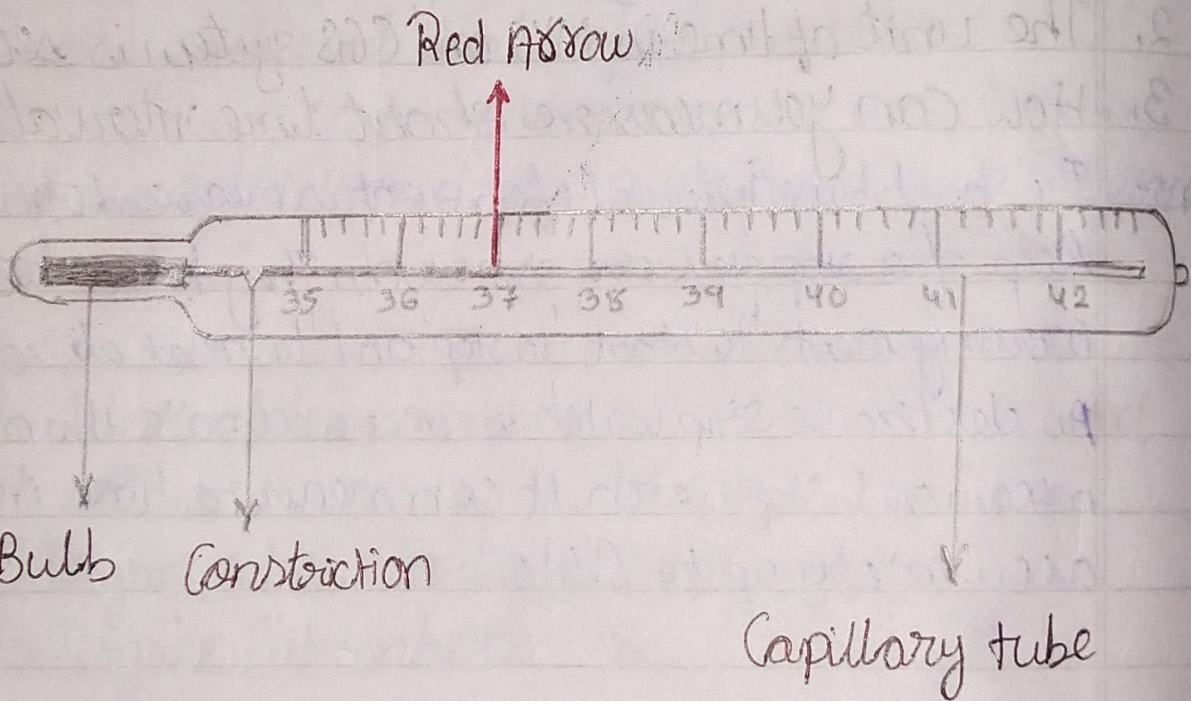 Red Arrow
35 36 37 38 39 40 41 42
Bulb Constriction
Capillary tube